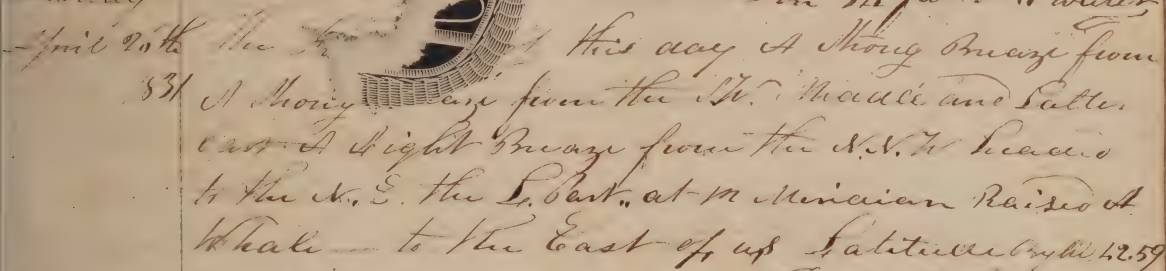 April 20th The this day A Strong Breaze from
831 A Strong aze from the NW. Middle and Latter
Part A Light Breaze from the N.N.W heading
to the N. E. the L. Part,, at M Miridian Raised A
Whale — to the East of us Latitude by 42.59